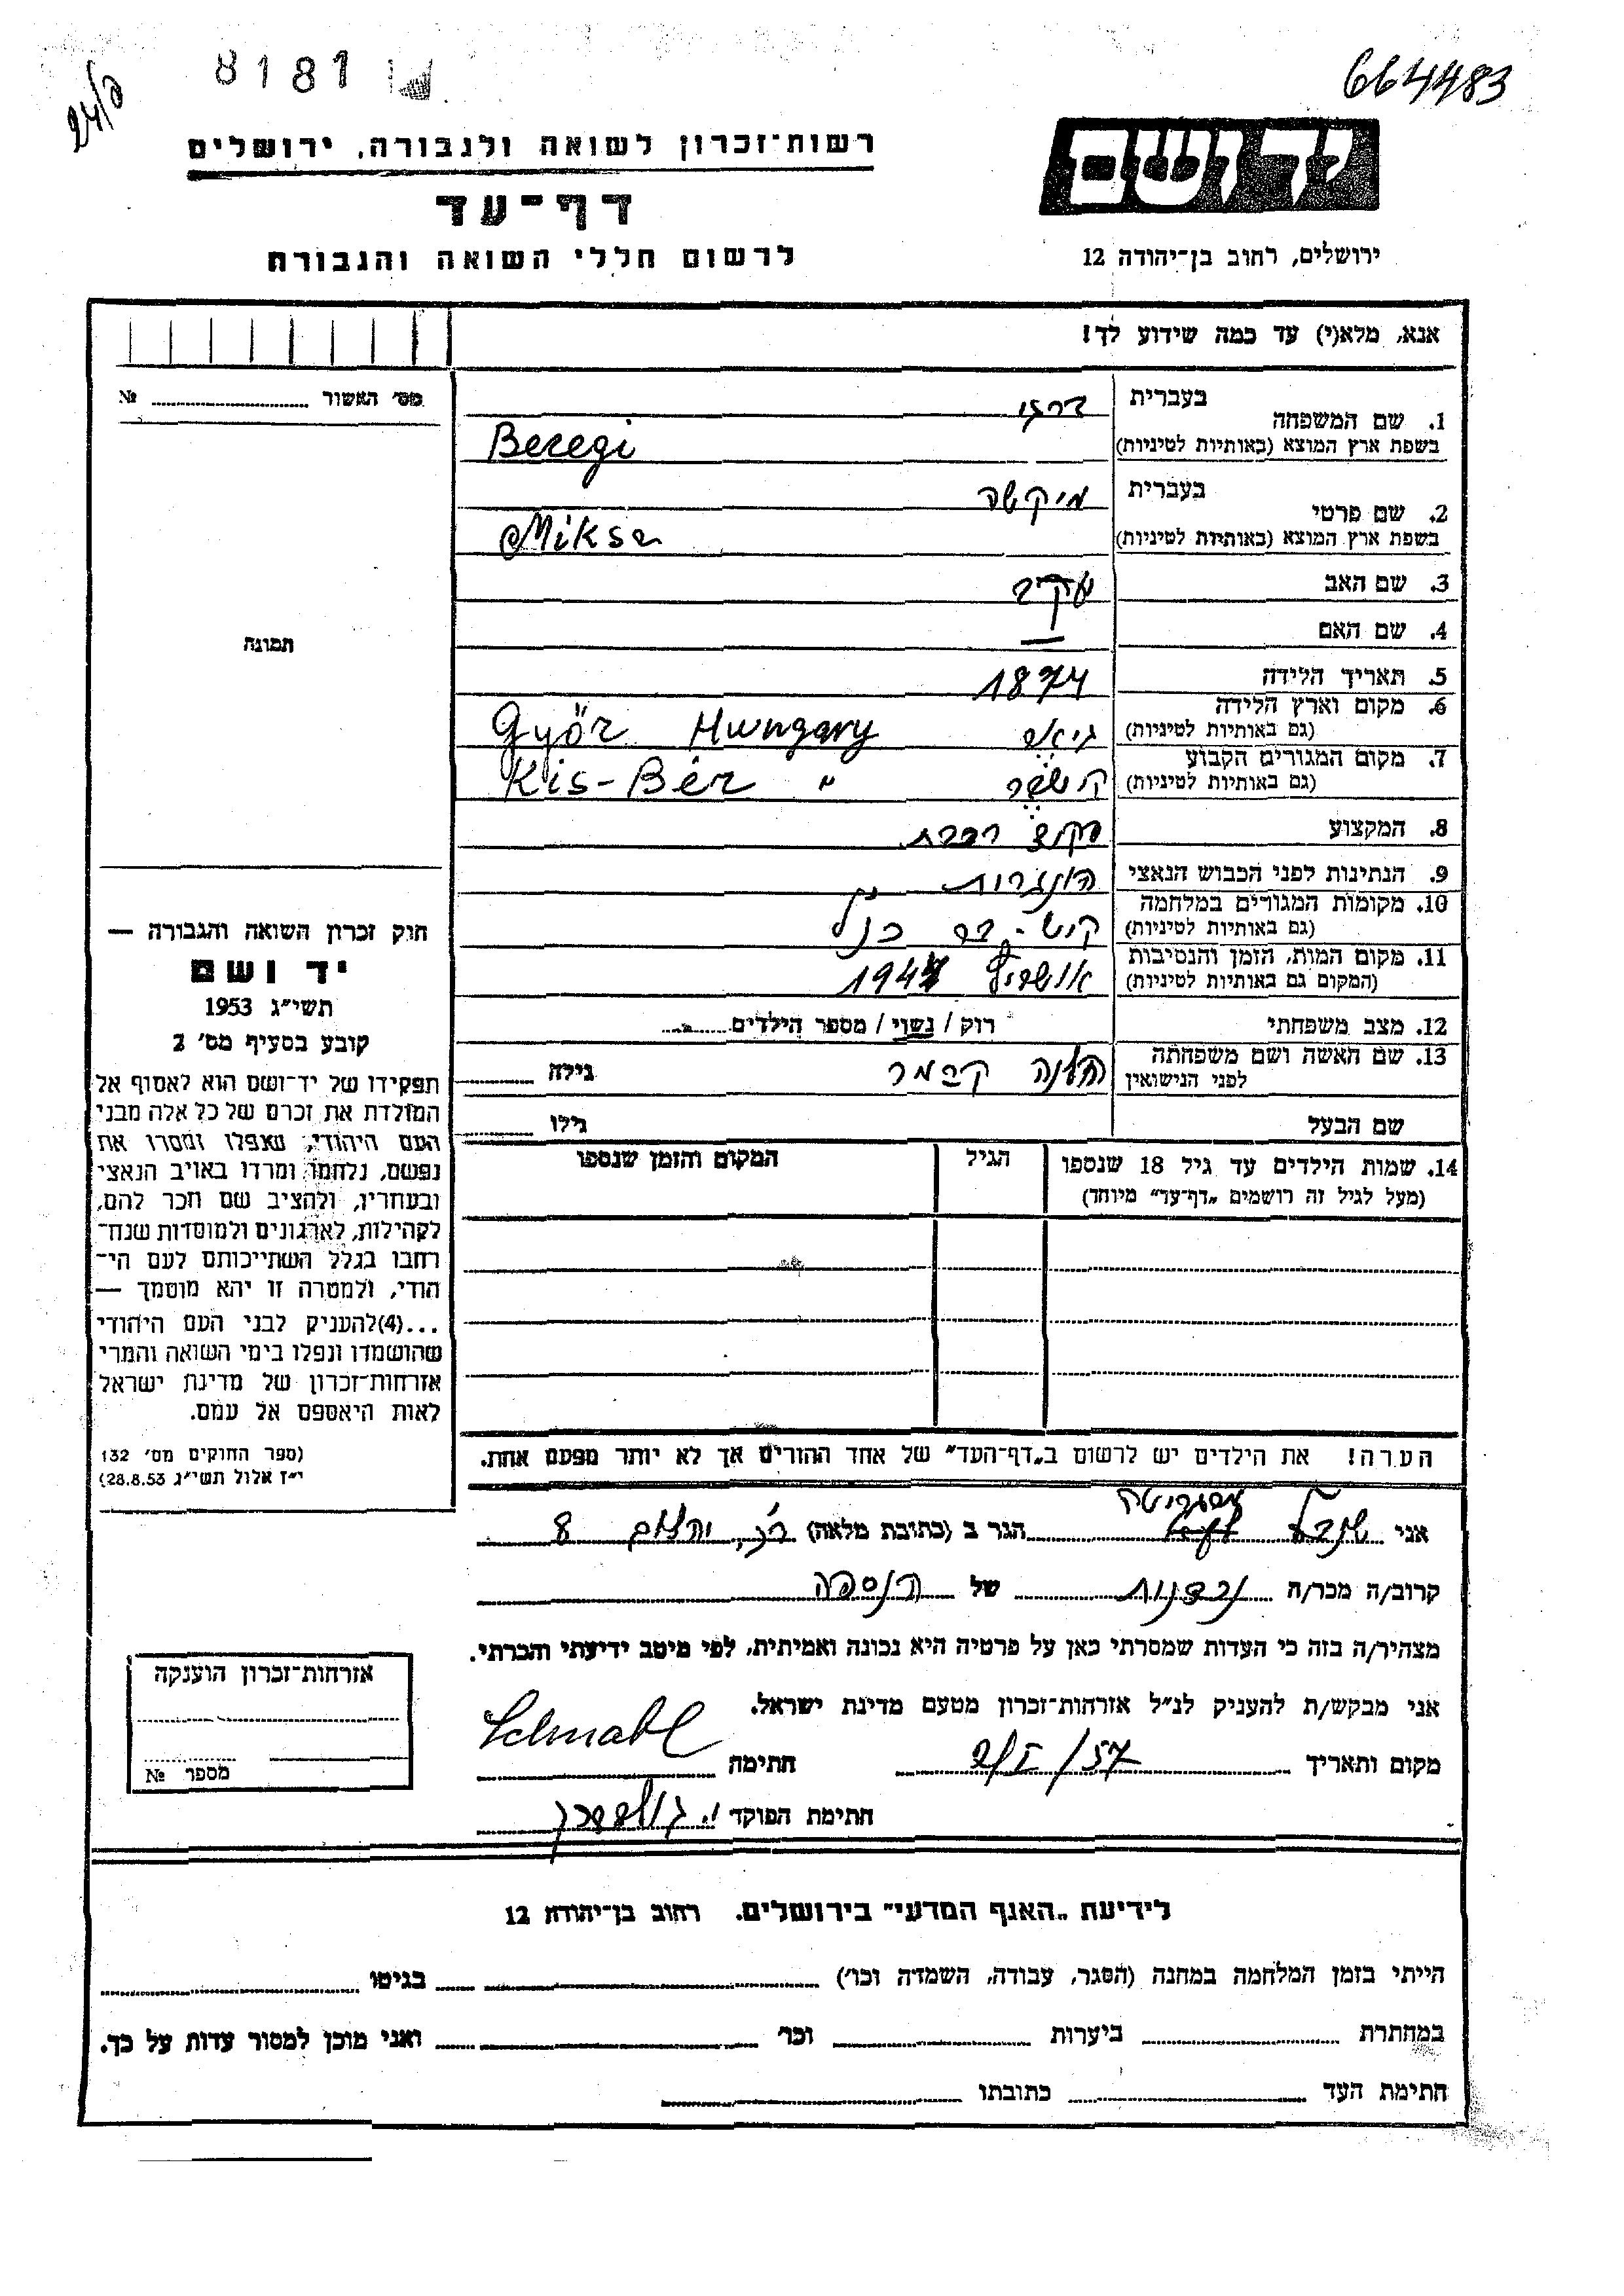 664483
8181
24/9
רשות־זכרון לשואה ולגבורה, ירושלים
דף־עד
לרשום חללי השואה והגבורה
יד ושם
ירושלים, רחוב בן־יהודה 12
אנא, מלא(י) עד כמה שידוע לך!
מס׳ האשור №
1. שם המשפחה
בעברית ברגי
בשפת ארץ המוצא (באותיות לטיניות) Beregi
2. שם פרטי
בעברית מיקשה
בשפת ארץ המוצא (באותיות לטיניות) Miksa
3. שם האב
4. שם האם —
5. תאריך הלידה 1874
6. מקום וארץ הלידה
(גם באותיות לטיניות) Győr Hungary
7. מקום המגורים הקבוע
(גם באותיות לטיניות) Kis-Bér "
8. המקצוע רכבת
9. הנתינות לפני הכבוש הנאצי
10. מקומות המגורים במלחמה
(גם באותיות לטיניות) קיש-בר כנ"ל
11. מקום המות, הזמן והנסיבות
(המקום גם באותיות לטיניות) אושויץ 1944
12. מצב משפחתי רוק / נשוי / מספר הילדים
13. שם האשה ושם משפחתה
לפני הנישואין גילה
שם הבעל גילו
14. שמות הילדים עד גיל 18 שנספו הגיל המקום והזמן שנספו
(מעל לגיל זה רושמים „דף־עד” מיוחד)
תמונה
חוק זכרון השואה והגבורה —
יד ושם
תשי״ג 1953
קובע בסעיף מס׳ 2
תפקידו של יד־ושם הוא לאסוף אל
המולדת את זכרם של כל אלה מבני
העם היהודי, שנפלו ומסרו את
נפשם, נלחמו ומרדו באויב הנאצי
ובעוזריו, ולהציב שם וזכר להם,
לקהילות, לארגונים ולמוסדות שנח־
רבו בגלל השתייכותם לעם הי־
הודי, ולמטרה זו יהא מוסמך —
...(4)להעניק לבני העם היהודי
שהושמדו ונפלו בימי השואה והמרי
אזרחות־זכרון של מדינת ישראל
לאות היאספם אל עמם.
(ספר החוקים מס׳ 132
י״ז אלול תשי״ג 28.8.53)
הערה! את הילדים יש לרשום ב„דף־העד” של אחד ההורים אך לא יותר מפעם אחת.
אני שנבל מרגריטה הגר ב (כתובת מלאה) 8
קרוב/ה מכר/ה של הנספה
מצהיר/ה בזה כי העדות שמסרתי כאן על פרטיה היא נכונה ואמיתית, לפי מיטב ידיעתי והכרתי.
אני מבקש/ת להעניק לנ״ל אזרחות־זכרון מטעם מדינת ישראל.
מקום ותאריך 2/I/57 חתימה Schnabl
חתימת הפוקד
אזרחות־זכרון הוענקה
מספר №
לידיעת „האגף המדעי” בירושלים, רחוב בן־יהודה 12
הייתי בזמן המלחמה במחנה (הסגר, עבודה, השמדה וכו׳) בגיטו
במחתרת ביערות וכו׳ ואני מוכן למסור עדות על כך.
חתימת העד כתובתו